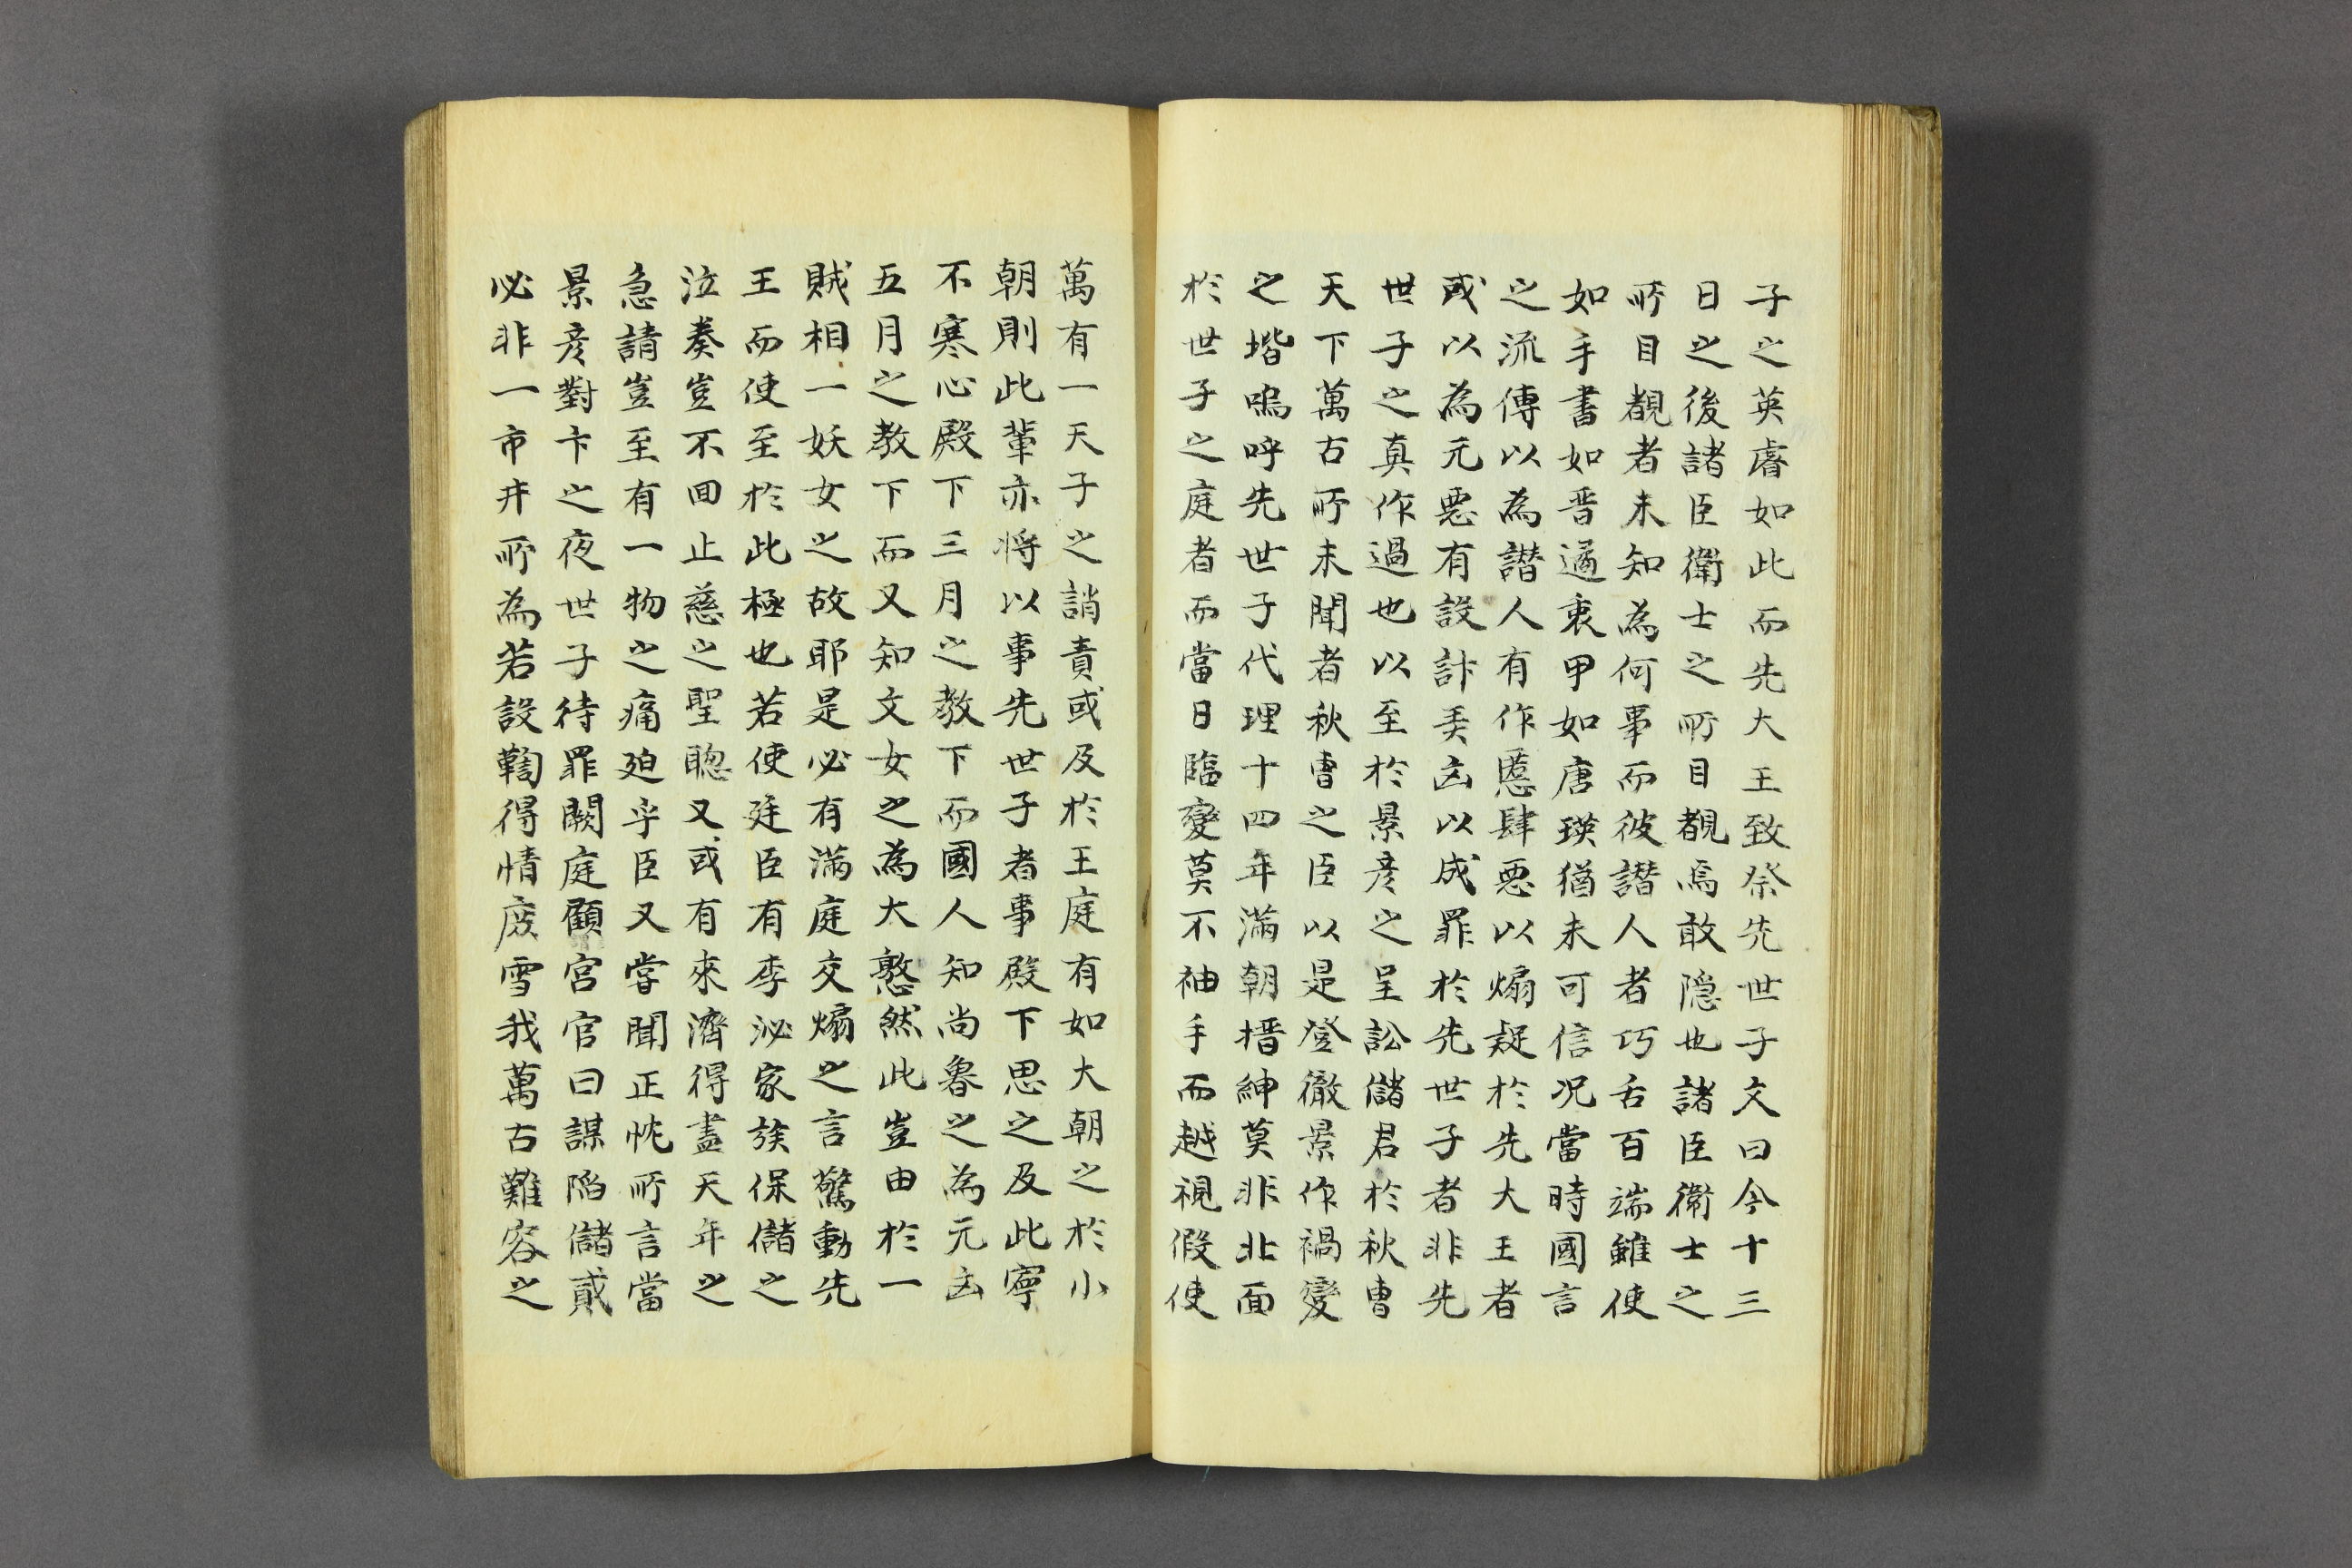 子之英睿如此而先大王致祭先世子文曰今十三
日之後諸臣衛士之所目覩焉敢隐也諸臣衛士之
所目覩者未知為何事而彼譖人者巧舌百端雖使
如手書如晋遹衷甲如唐瑛猶未可信况當時國言
之流傳以為譖人有作慝肆惡以煽疑於先大王者
或以為元惡有設計羙凶以成罪於先世子者非先
世子之真作過也以至於景彦之呈訟儲君於秋曹
天下萬古所未聞者秋曹之臣以是登徹景作禍變
之堦嗚呼先世子代理十四年滿朝搢紳莫非北面
於世子之庭者而當日臨變莫不袖手而越視假使
萬有一天子之誚責或及於王庭有如大朝之於小
朝則此輩亦将以事先世子者事殿下思之及此寧
不寒心殿下三月之教下而國人知尚魯之為元凶
五月之教下而又知文女之為大憝然此豈由於一
賊相一妖女之故耶是必有滿庭交煽之言驚動先
王而使至於此極也若使廷臣有李泌家族保儲之
泣奏豈不回止慈之聖聰又或有來濟得盡天年之
急請豈至有一物之痛廹乎臣又嘗聞正忱所言當
景彦對卞之夜世子待罪闕庭顧宮官曰謀陷儲貳
必非一市井所為若設鞫得情庶雪我萬古難容之